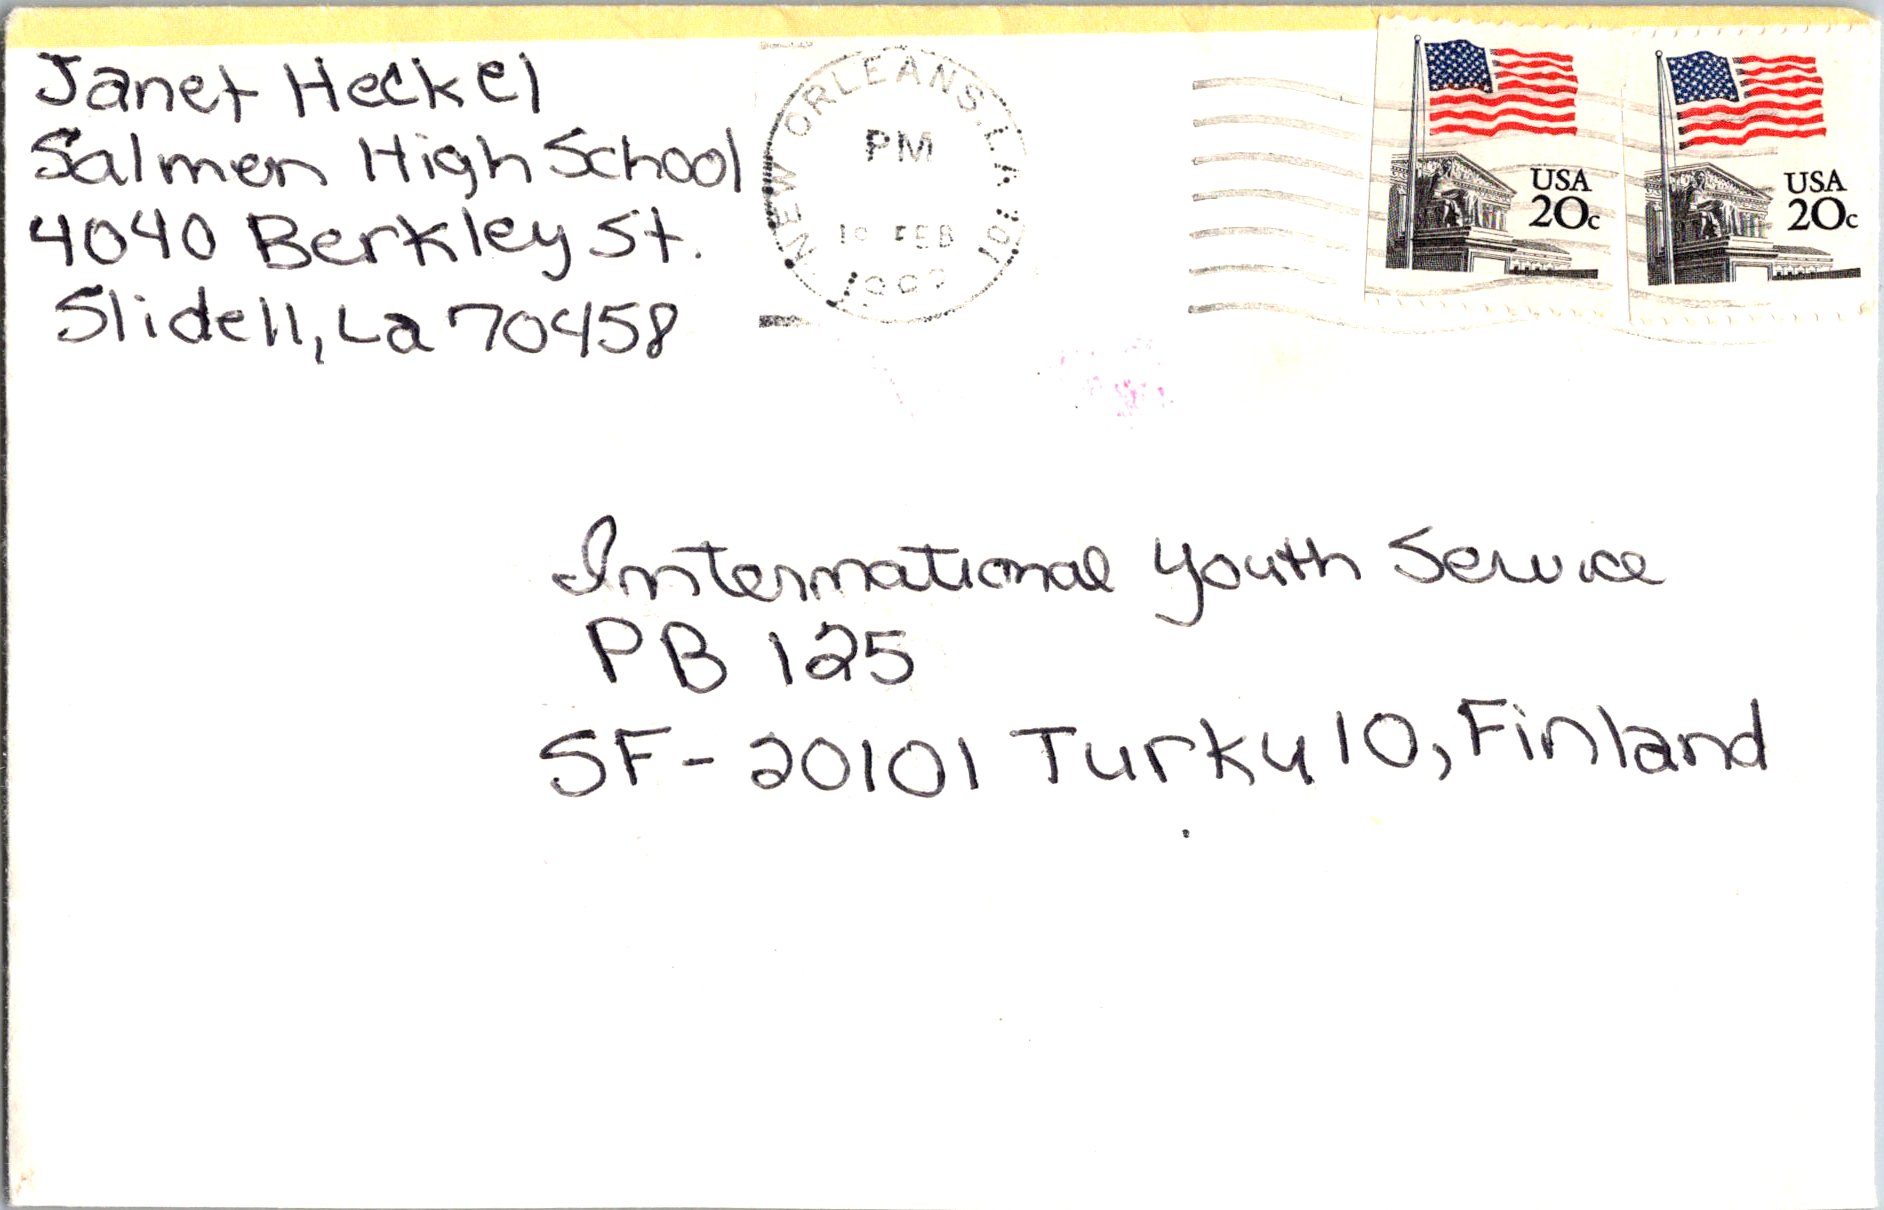 Janet Heckel
Salmen High School
4040 Berkley St.
Slidell, La 70458
NEW ORLEANS, LA 701
PM
FEB
USA
20c
USA
20c
International Youth Service
PB 125
SF-20101 Turky 10, Finland